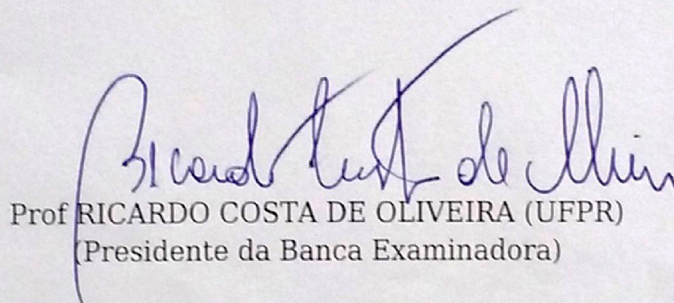 Ricardo Costa de Oliveira
Prof RICARDO COSTA DE OLIVEIRA (UFPR)
(Presidente da Banca Examinadora)